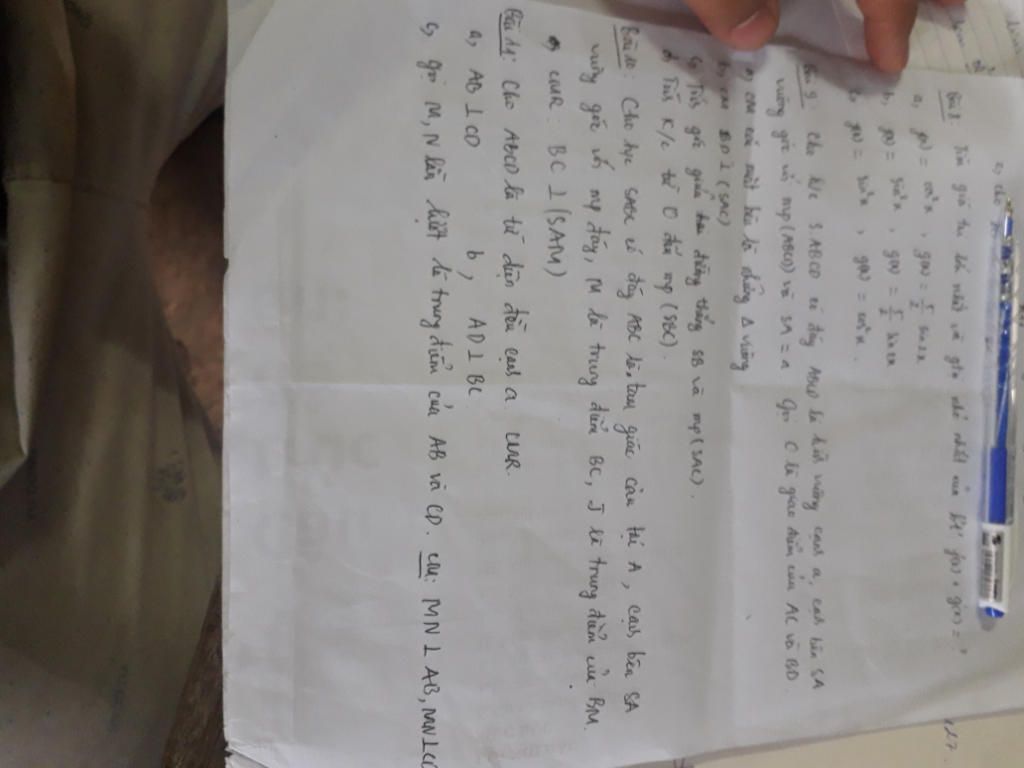 c, cho
Bài 8: Tìm giá trị lớn nhất và giá trị nhỏ nhất của bt: f(x) + g(x) = ?
a, f(x) = cos²x, g(x) = 5/2 sin2x
b, f(x) = sin²x, g(x) = 5/2 sin2x
f(x) = sin²x, g(x) = cos²x.
Bài 9: Cho h/c S.ABCD có đáy ABCD là hình vuông cạnh a, cạnh bên SA
vuông góc với mp(ABCD) và SA = a. Gọi O là giao điểm của AC và BD.
a, cm các mặt bên là những Δ vuông
b, cm BD ⊥ (SAC)
c, Tính góc giữa hai đường thẳng SB và mp(SAC).
d, Tính k/c từ O đến mp(SBC).
Bài 10: Cho h/c SABC có đáy ABC là tam giác cân tại A, cạnh bên SA
vuông góc với mp đáy, M là trung điểm BC, J là trung điểm của BM.
a, CMR: BC ⊥ (SAM)
Bài 11: Cho ABCD là tứ diện đều cạnh a. CMR.
a, AB ⊥ CD b, AD ⊥ BC
c, gọi M, N lần lượt là trung điểm của AB và CD. CM: MN ⊥ AB, MN ⊥ CD